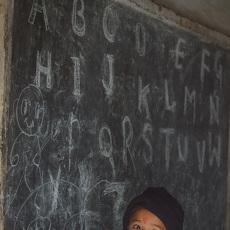 A B C D E F G
H I J K L M N
O P Q R S T U V W
X Y Z